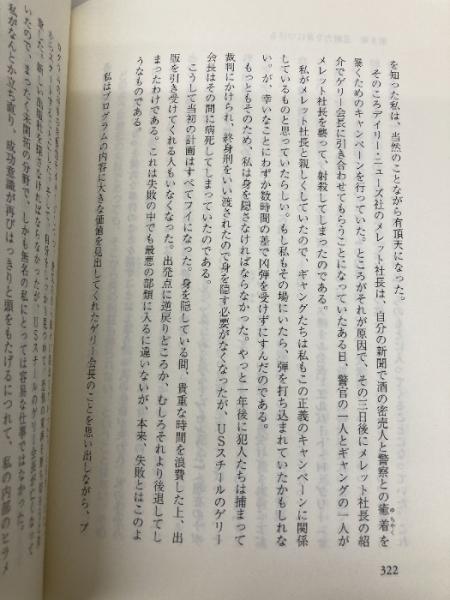 を知った私は、当然のことながら有頂天になった。
そのころデイリー・ニューズ社のメレット社長は、自分の新聞で酒の密売人と警察との癒着を
ゆちゃく
暴くためのキャンペーンを行っていた。ところがそれが原因で、その三日後にメレット社長の紹
介でゲリー会長に引き合わせてもらうことになっていたある日、警官の一人とギャングの一人が
メレット社長を襲って、射殺してしまったのである。
私がメレット社長と親しくしていたので、ギャングたちは私もこの正義のキャンペーンに関係
しているものと思っていたらしい。もし私もその場にいたら、弾を打ち込まれていたかもしれな
い。が、幸いなことにわずか数時間の差で凶弾を受けずにすんだのである。
もっともそのため、私は身を隠さなければならなかった。やっと一年後に犯人たちは捕まって
裁判にかけられ、終身刑をいい渡されたので身を隠す必要がなくなったが、USスチールのゲリー
会長はその間に病死してしまっていたのだ。
こうして当初の計画はすべてフイになった。身を隠している間、貴重な時間を浪費した上、出
版を引き受けてくれる人もいなくなった。出発点に逆戻りどころか、むしろそれより後退してし
まったわけである。これは失敗の中でも最悪の部類に入るに違いないが、本来、失敗とはこのよ
うなものである
私はプログラムの内容に大きな価値を見出してくれたゲリー会長のことを思い出しながら、プ
いたので、まったく未開拓の分野で、しかも無名の私にとっては容易な仕事ではなかった。
私がなんとか立ち直り、成功意識が再びはっきりと頭をもたげるにつれて、私の内部のヒラメ
322